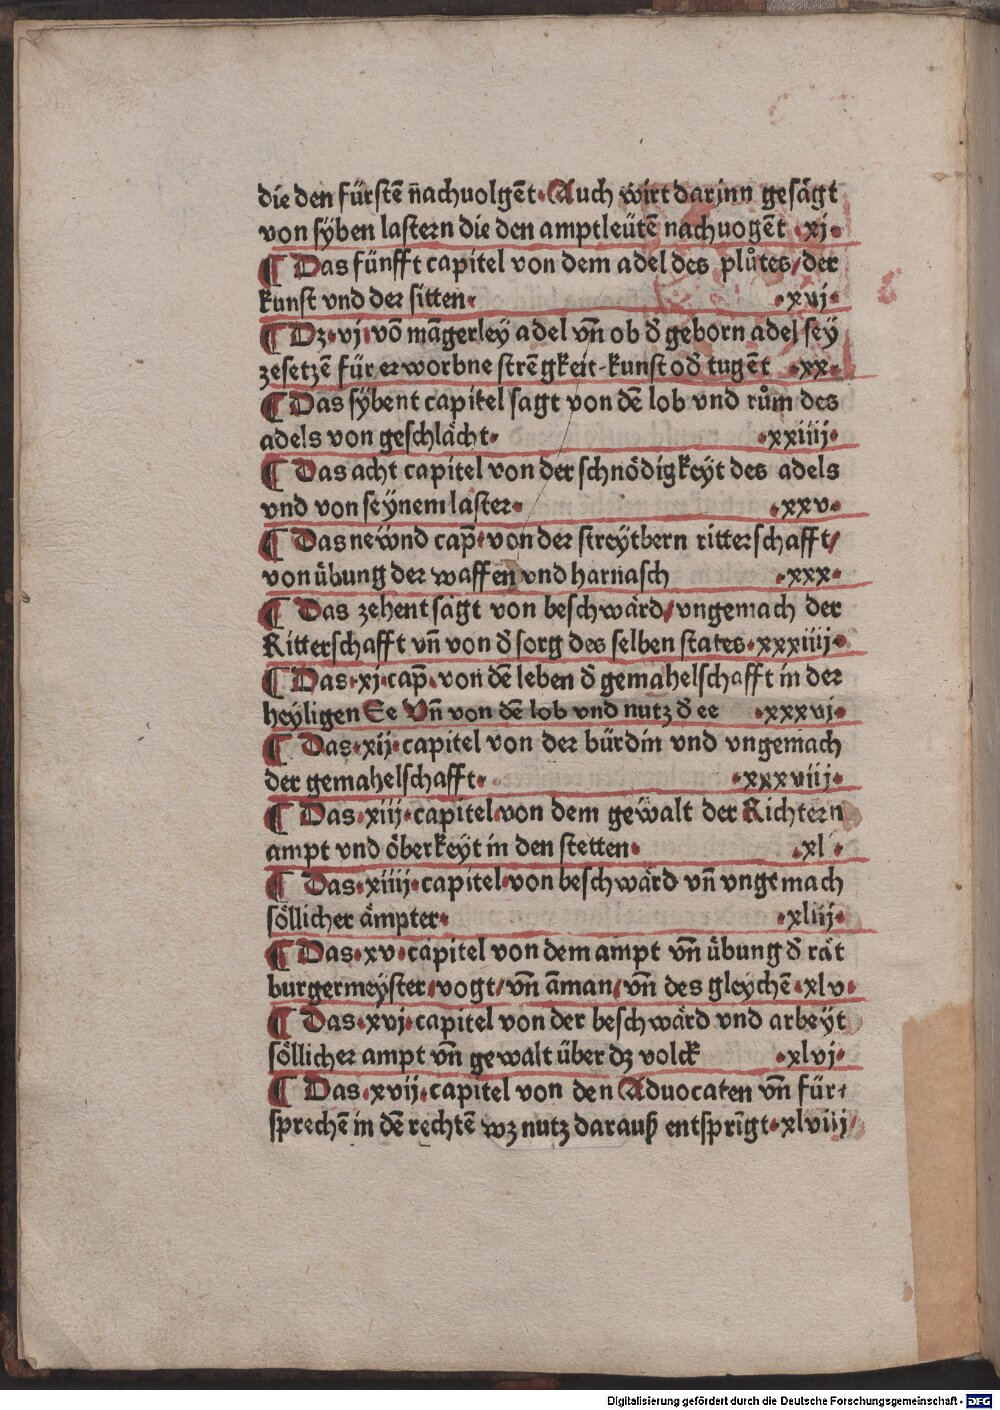 die den fürstē nachuolgēt· Auch wirt darjnn gesägt
von syben lastern die den amptleütē nachuogēt ·xj·
¶ Das fünfft capitel von dem adel des plůtes/der
kunst vnd der sitten· ·xvj·
¶ Dz·vj·vō māgerley adel vñ ob d̄ geborn adel sey
zesetzē für erworbne strēgkeit·kunst od̄ tugēt ·xx·
¶ Das sÿbent capitel sagt von dē lob vnd rům des
adels von geschlächt· ·xxiiij·
¶ Das acht capitel von der schnödigkeyt des adels
vnd von seÿnem laster· ·xxv·
¶ Das newnd cap̄·von der streÿtbern ritterschafft/
von übung der waffen vnd harnasch ·xxx·
¶ Das zehent sagt von beschwärd/vngemach der
Ritterschafft vñ von d̄ sorg des selben states·xxxiiij·
¶ Das·xj·cap̄·von dē leben d̄ gemahelschafft in der
heyligen Ee Vñ von dē lob vnd nutz d̄ ee ·xxxvj·
¶ Das·xij·capitel von der bürdin vnd vngemach
der gemahelschafft· ·xxxviij·
¶ Das·xiij·capitel von dem gewalt der Richtern
ampt vnd öberkeÿt in den stetten· ·xl·
¶ Das·xiiij·capitel·von beschwärd vñ vngemach
söllicher ämpter· ·xliij·
¶ Das·xv·capitel von dem ampt vñ übung d̄ rät
burgermeÿster/vogt/vñ āman/vñ des gleychē·xlv·
¶ Das·xvj·capitel von der beschwärd vnd arbeÿt
söllicher ampt vñ gewalt über dz volck ·xlvj·
¶ Das·xvij·capitel von den Aduocaten vñ für-
sprechē in dē rechtē wz nutz darauß entsprīgt·xlviij/
Digitalisierung gefördert durch die Deutsche Forschungsgemeinschaft - DFG